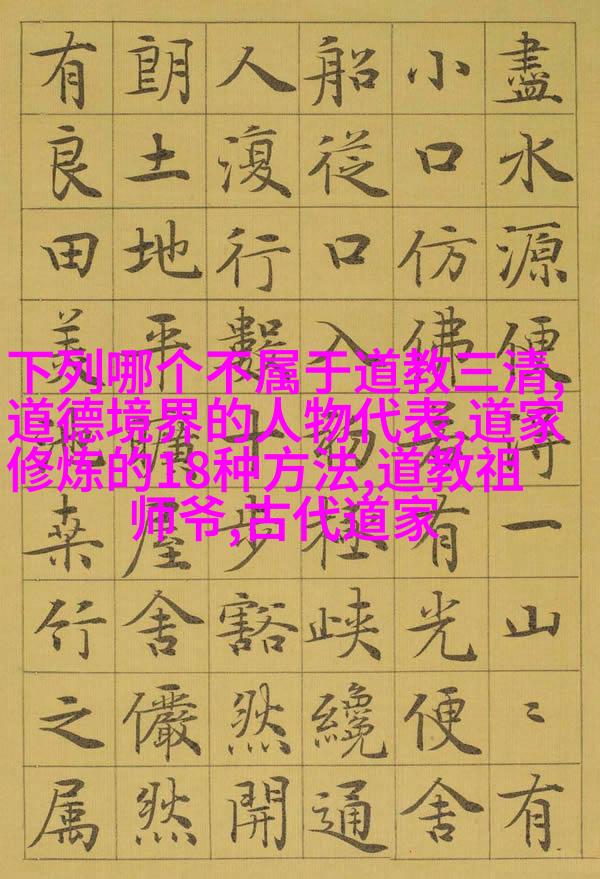 盡水源便得一山〻有
小口仿佛若有光便舍
船從口入初極峽纔通
人復行數十步豁然開
朗土地平曠屋舍儼然
有良田美池桑竹之属
下列哪个不属于道教三清,
道德境界的人物代表,道家
修炼的18种方法,道教祖
师爷,古代道家